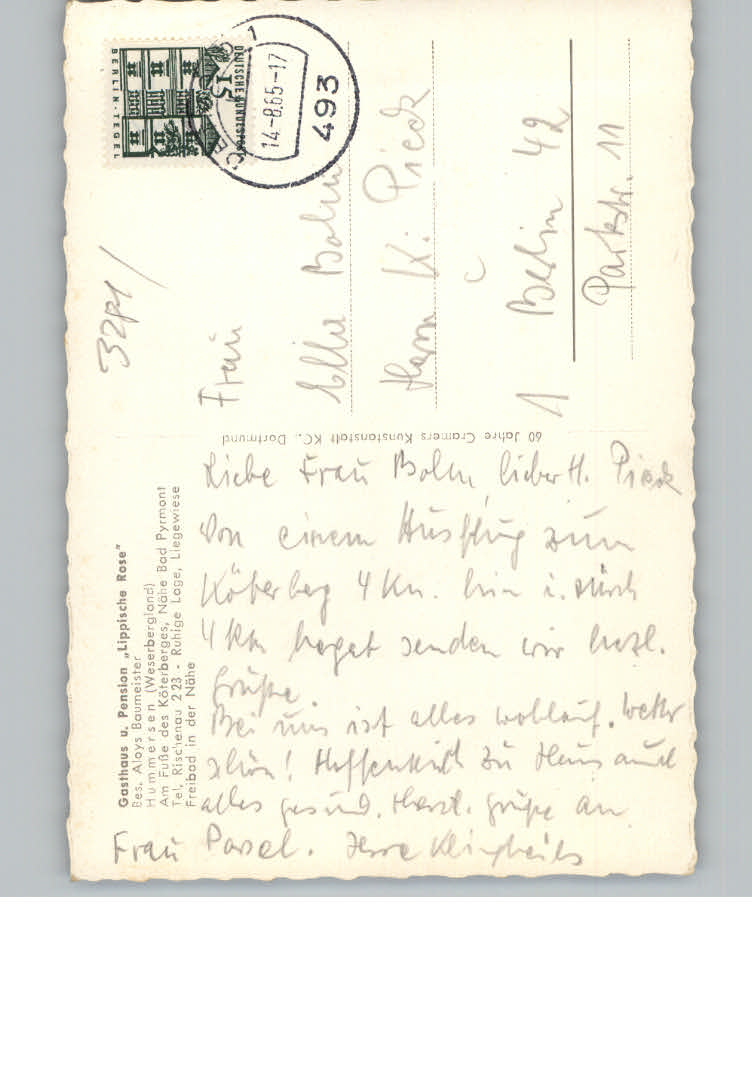 Gasthaus u. Pension „Lippische Rose"
Bes. Aloys Baumeister
Hummersen (Weserbergland)
Am Fuße des Köterberges, Nähe Bad Pyrmont
Tel. Rischenau 223 - Ruhige Lage, Liegewiese
Freibad in der Nähe
Liebe Frau Bolm, lieber H. Pieck
Von einem Ausflug zum
Köterberg 4 Km. hin u. zurück
4 Km senden wir herzl.
Grüße.
Bei uns ist alles wohlauf. Wetter
schön! Hoffentlich zu Haus auch
alles gesund. Herzl. Grüße an
Frau
60 Jahre Cramers Kunstanstalt KG., Dortmund
DEUTSCHE BUNDESPOST
15
BERLIN-TEGEL
493
14-8.65-17
Frau
Ella Bolm
Herrn K. Pieck
1 Berlin 42
Parkstr. 11